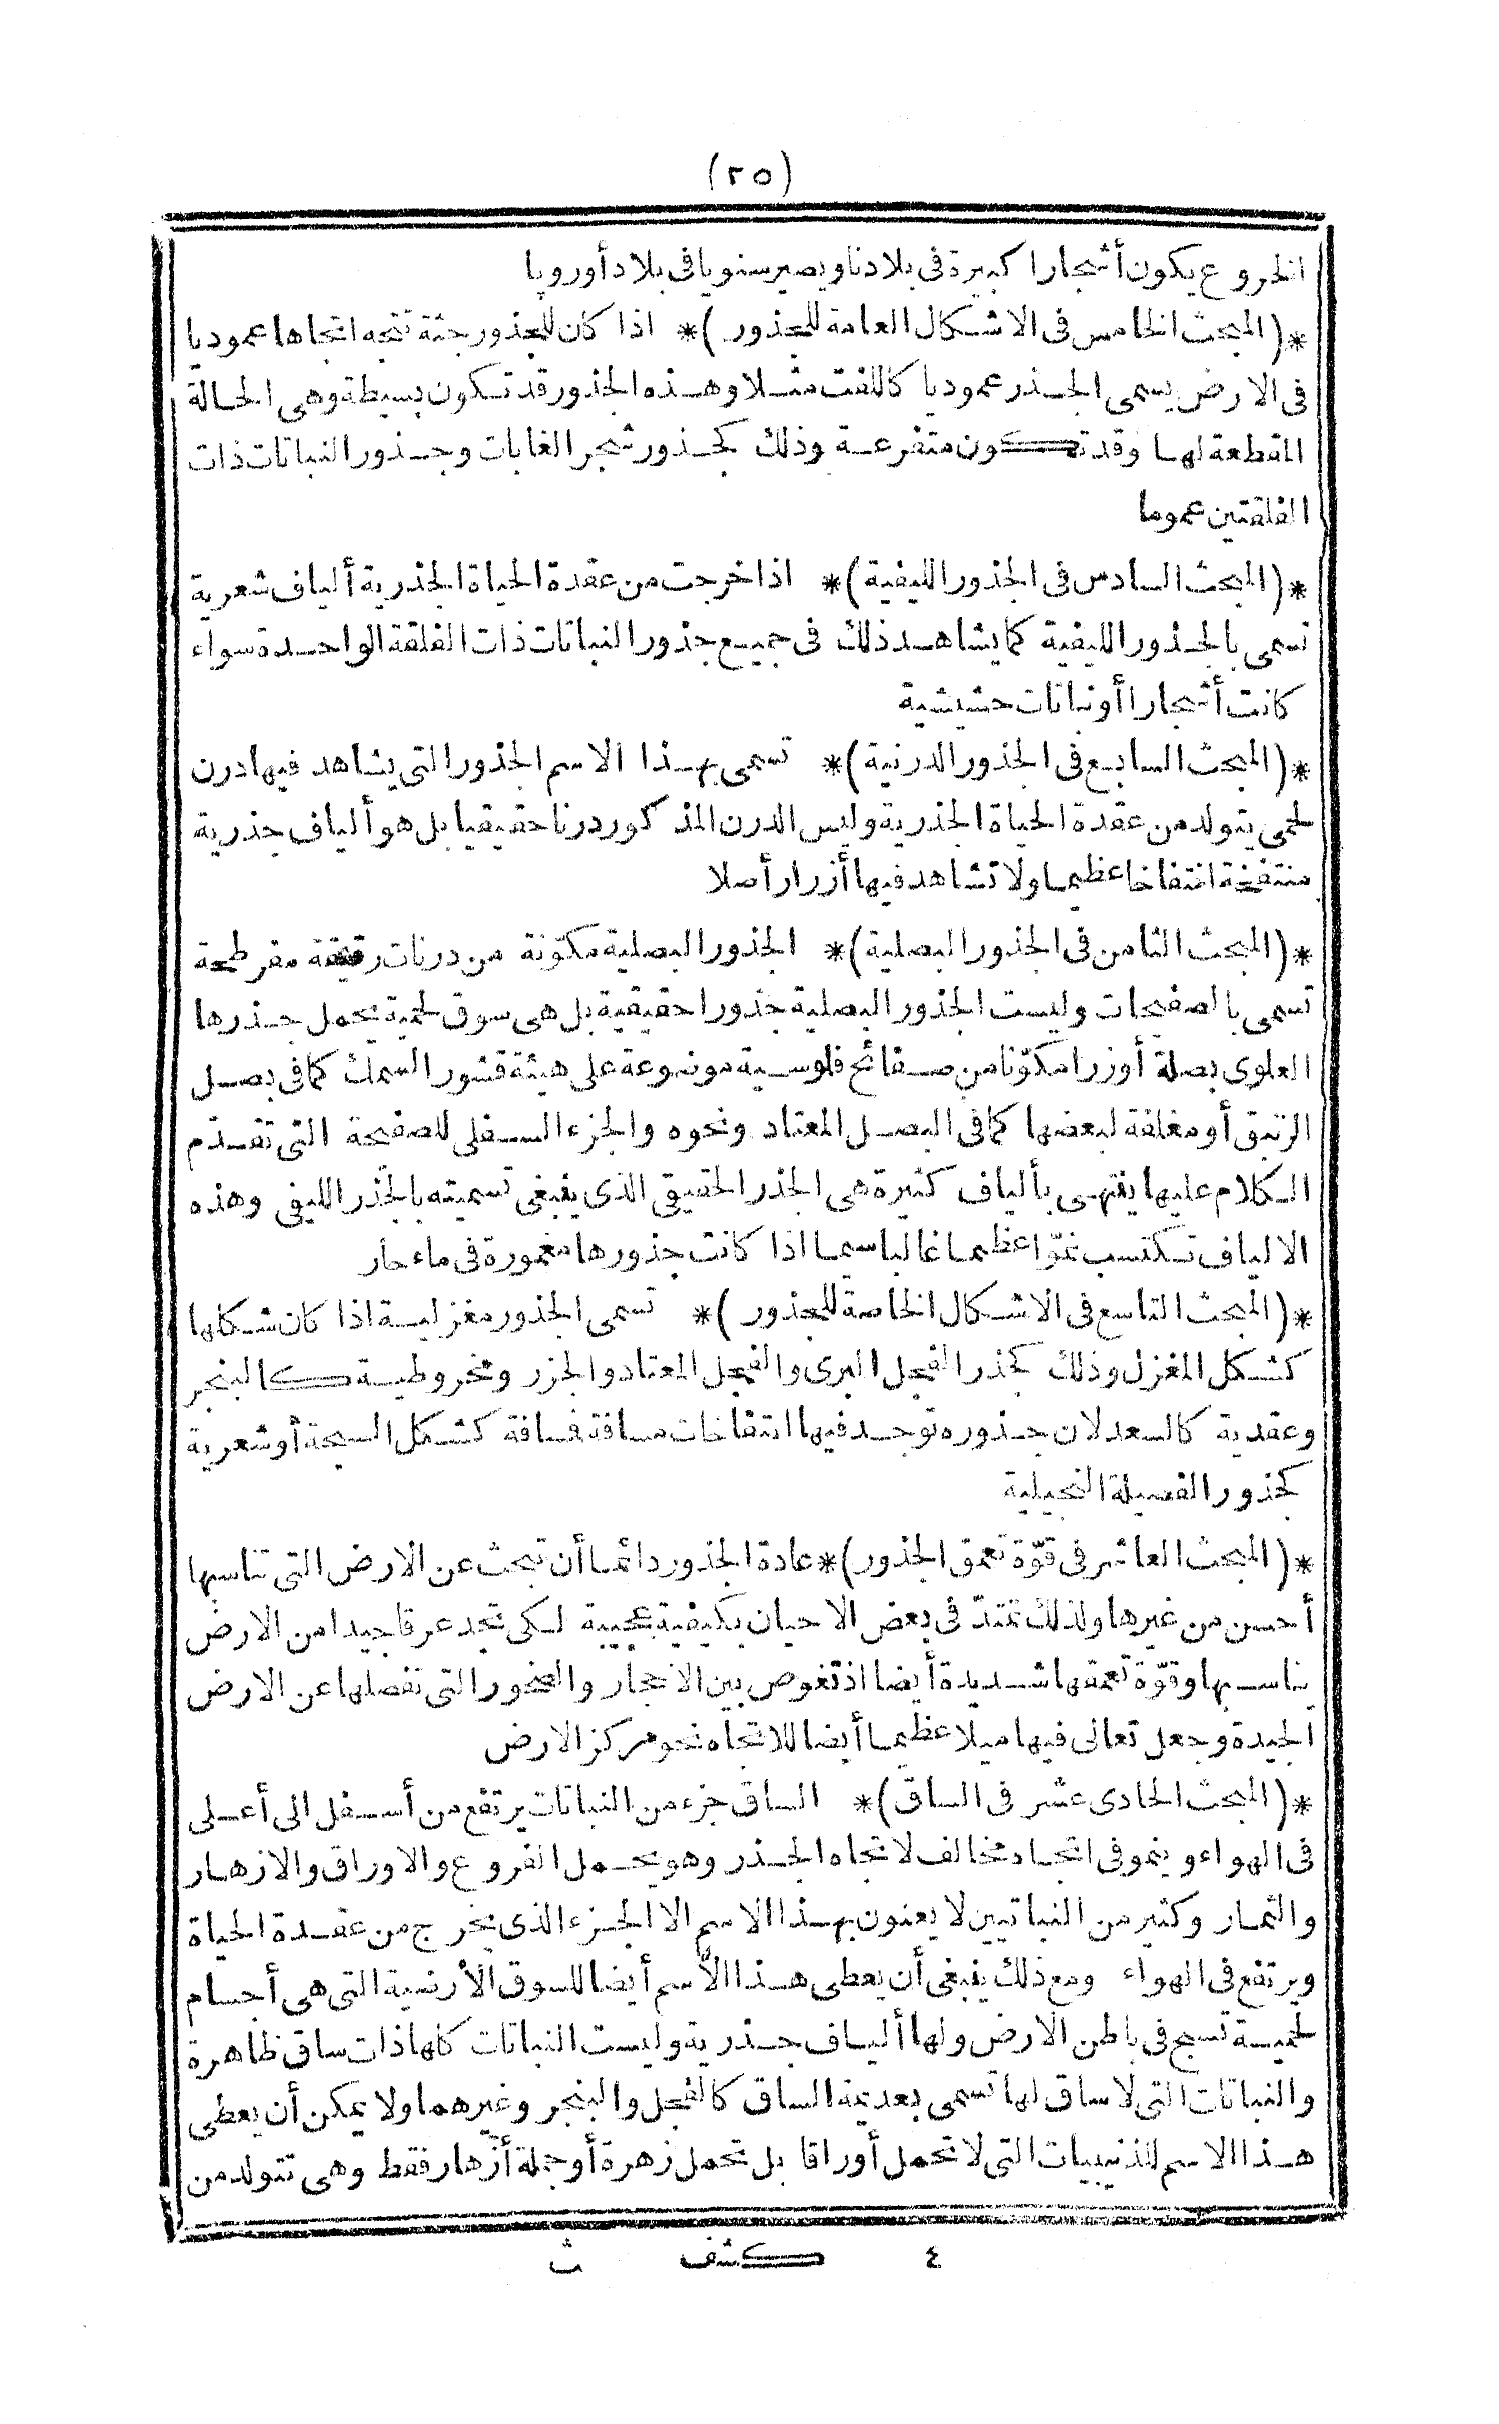 (٢٥)
الخروع يكون أشجارا كبيرة فى بلادنا ويصير سنويا فى بلاد أوروپا
*(المبحث الخامس فى الاشكال العامة للجذور)* اذا كان للجذور جثة تتجه اتجاها عموديا
فى الارض يسمى الجذر عموديا كاللفت مثلا وهذه الجذور قد تكون بسيطة وهى الحالة
المقطعة لها وقد تكون متفرعة وذلك كجذور شجر الغابات وجذور النباتات ذات
الفلقتين عموما
*(المبحث السادس فى الجذور الليفية)* اذا خرجت من عقدة الحياة الجذرية ألياف شعرية
تسمى بالجذور الليفية كما يشاهد ذلك فى جميع جذور النباتات ذات الفلقة الواحدة سواء
كانت أشجارا أو نباتات حشيشية
*(المبحث السابع فى الجذور الدرنية)* تسمى بهذا الاسم الجذور التى يشاهد فيها درن
لحمى يتولد من عقدة الحياة الجذرية وليس الدرن المذكور درنا حقيقيا بل هو ألياف جذرية
منتفخة انتفاخا عظيما ولا تشاهد فيها أزرار أصلا
*(المبحث الثامن فى الجذور البصلية)* الجذور البصلية مكوّنة من درنات رقيقة مفرطحة
تسمى بالصفيحات وليست الجذور البصلية جذورا حقيقية بل هى سوق لحمية يحمل جذرها
العلوى بصلة أو زرا مكوّنا من صفائح فلوسية موضوعة على هيئة قشور السمك كما فى بصل
الزنبق أو مغلفة لبعضها كما فى البصل المعتاد ونحوه والجزء السفلى للصفيحة التى تقدّم
الكلام عليها ينتهى بألياف كثيرة هى الجذر الحقيقى الذى ينبغى تسميته بالجذر الليفى وهذه
الالياف تكتسب نموّا عظيما غالبا سيما اذا كانت جذورها مغمورة فى ماء جار
*(المبحث التاسع فى الاشكال الخاصة للجذور)* تسمى الجذور مغزلية اذا كان شكلها
كشكل المغزل وذلك كجذر الفجل البرى والفجل المعتاد والجزر ومخروطية كالبنجر
وعقدية كالسعد لان جذوره توجد فيها انتفاخات مسافة فسافة كشكل السبحة أو شعرية
كجذور الفصيلة النجيلية
*(المبحث العاشر فى قوّة تعمق الجذور)* عادة الجذور دائما أن تبحث عن الارض التى تناسبها
أحسن من غيرها ولذلك تمتدّ فى بعض الاحيان بكيفية عجيبة لكى تجد عرقا جيدا من الارض
يناسبها وقوّة تعمقها شديدة أيضا اذ تغوص بين الاحجار والصخور التى تفصلها عن الارض
الجيدة وجعل تعالى فيها ميلا عظيما أيضا للاتجاه نحو مركز الارض
*(المبحث الحادى عشر فى الساق)* الساق جزء من النباتات يرتفع من أسفل الى أعلى
فى الهواء وينمو فى اتجاه مخالف لاتجاه الجذر وهو يحمل الفروع والاوراق والازهار
والثمار وكثير من النباتيين لا يعنون بهذا الاسم الا الجزء الذى يخرج من عقدة الحياة
ويرتفع فى الهواء ومع ذلك ينبغى أن يعطى هذا الاسم أيضا للسوق الأرضية التى هى أجسام
لحمية تسبح فى باطن الارض ولها ألياف جذرية وليست النباتات كلها ذات ساق ظاهرة
والنباتات التى لا ساق لها تسمى بعديمة الساق كالفجل والبنجر وغيرهما ولا يمكن أن يعطى
هذا الاسم للذنيبات التى لا تحمل أوراقا بل تحمل زهرة أو جملة أزهار فقط وهى تتولد من
٤ كشف ث